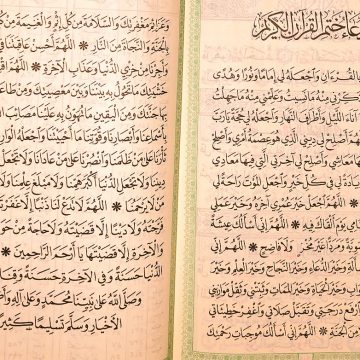 عَاءُ خَتْمِ الْقُرْآنِ الْكَرِيمِ
لْقُرْءَانِ وَاجْعَلْهُ لِي إِمَامًا وَنُورًا وَهُدًى
ذَكِّرْنِي مِنْهُ مَا نَسِيتُ وَعَلِّمْنِي مِنْهُ مَا جَهِلْتُ
آنَاءَ اللَّيْلِ وَأَطْرَافَ النَّهَارِ وَاجْعَلْهُ لِي حُجَّةً يَارَبَّ
صْلِحْ لِي دِينِي الَّذِي هُوَ عِصْمَةُ أَمْرِي وَأَصْلِحْ
مَعَاشِي وَأَصْلِحْ لِي آخِرَتِي الَّتِي فِيهَا مَعَادِي
ادَةً لِي فِي كُلِّ خَيْرٍ وَاجْعَلِ الْمَوْتَ رَاحَةً لِي
اجْعَلْ خَيْرَ عُمْرِي آخِرَهُ وَخَيْرَ عَمَلِي
مِي يَوْمَ أَلْقَاكَ فِيهِ ❋ اللَّهُمَّ إِنِّي أَسْأَلُكَ عِيشَةً
سَوِيَّةً وَمَرَدًّا غَيْرَ مُخْزٍ وَلَا فَاضِحٍ ❋ اللَّهُمَّ إِنِّي
لَةِ وَخَيْرَ الدُّعَاءِ وَخَيْرَ النَّجَاحِ وَخَيْرَ الْعِلْمِ وَخَيْرَ
وَابِ وَخَيْرَ الْحَيَاةِ وَخَيْرَ الْمَمَاتِ وَثَبِّتْنِي وَثَقِّلْ مَوَازِينِي
رْفَعْ دَرَجَتِي وَتَقَبَّلْ صَلَاتِي وَاغْفِرْ خَطِيئَاتِي
مِنَ الْجَنَّةِ ❋ اللَّهُمَّ إِنِّي أَسْأَلُكَ مُوجِبَاتِ رَحْمَتِكَ
وَعَزَائِمَ مَغْفِرَتِكَ وَالسَّلَامَةَ مِنْ كُلِّ إِثْمٍ وَالْغَنِيمَةَ مِنْ
بِالْجَنَّةِ وَالنَّجَاةَ مِنَ النَّارِ ❋ اللَّهُمَّ أَحْسِنْ عَاقِبَتَنَا فِي
وَأَجِرْنَا مِنْ خِزْيِ الدُّنْيَا وَعَذَابِ الْآخِرَةِ ❋ اللَّهُمَّ اقْسِمْ
خَشْيَتِكَ مَا تَحُولُ بِهِ بَيْنَنَا وَبَيْنَ مَعْصِيَتِكَ وَمِنْ طَاعَ
بِهَا جَنَّتَكَ وَمِنَ الْيَقِينِ مَا تُهَوِّنُ بِهِ عَلَيْنَا مَصَائِبَ
بِأَسْمَاعِنَا وَأَبْصَارِنَا وَقُوَّتِنَا مَا أَحْيَيْتَنَا وَاجْعَلْهُ الْوَارِ
ثَأْرَنَا عَلَى مَنْ ظَلَمَنَا وَانْصُرْنَا عَلَى مَنْ عَادَانَا وَلَا تَجْعَلْ
دِينِنَا وَلَا تَجْعَلِ الدُّنْيَا أَكْبَرَ هَمِّنَا وَلَا مَبْلَغَ عِلْمِنَا وَلَا
مَنْ لَا يَرْحَمُنَا ❋ اللَّهُمَّ لَا تَدَعْ لَنَا ذَنْبًا إِلَّا غَفَرْتَهُ
فَرَّجْتَهُ وَلَا دَيْنًا إِلَّا قَضَيْتَهُ وَلَا حَاجَةً مِنْ حَوَ
وَالْآخِرَةِ إِلَّا قَضَيْتَهَا يَا أَرْحَمَ الرَّاحِمِينَ ❋
الدُّنْيَا حَسَنَةً وَفِي الْآخِرَةِ حَسَنَةً وَقِنَا
وَصَلَّى اللهُ عَلَى نَبِيِّنَا مُحَمَّدٍ وَعَلَى آلِهِ وَأَصْ
الْأَخْيَارِ وَسَلَّمَ تَسْلِيمًا كَثِيرًا